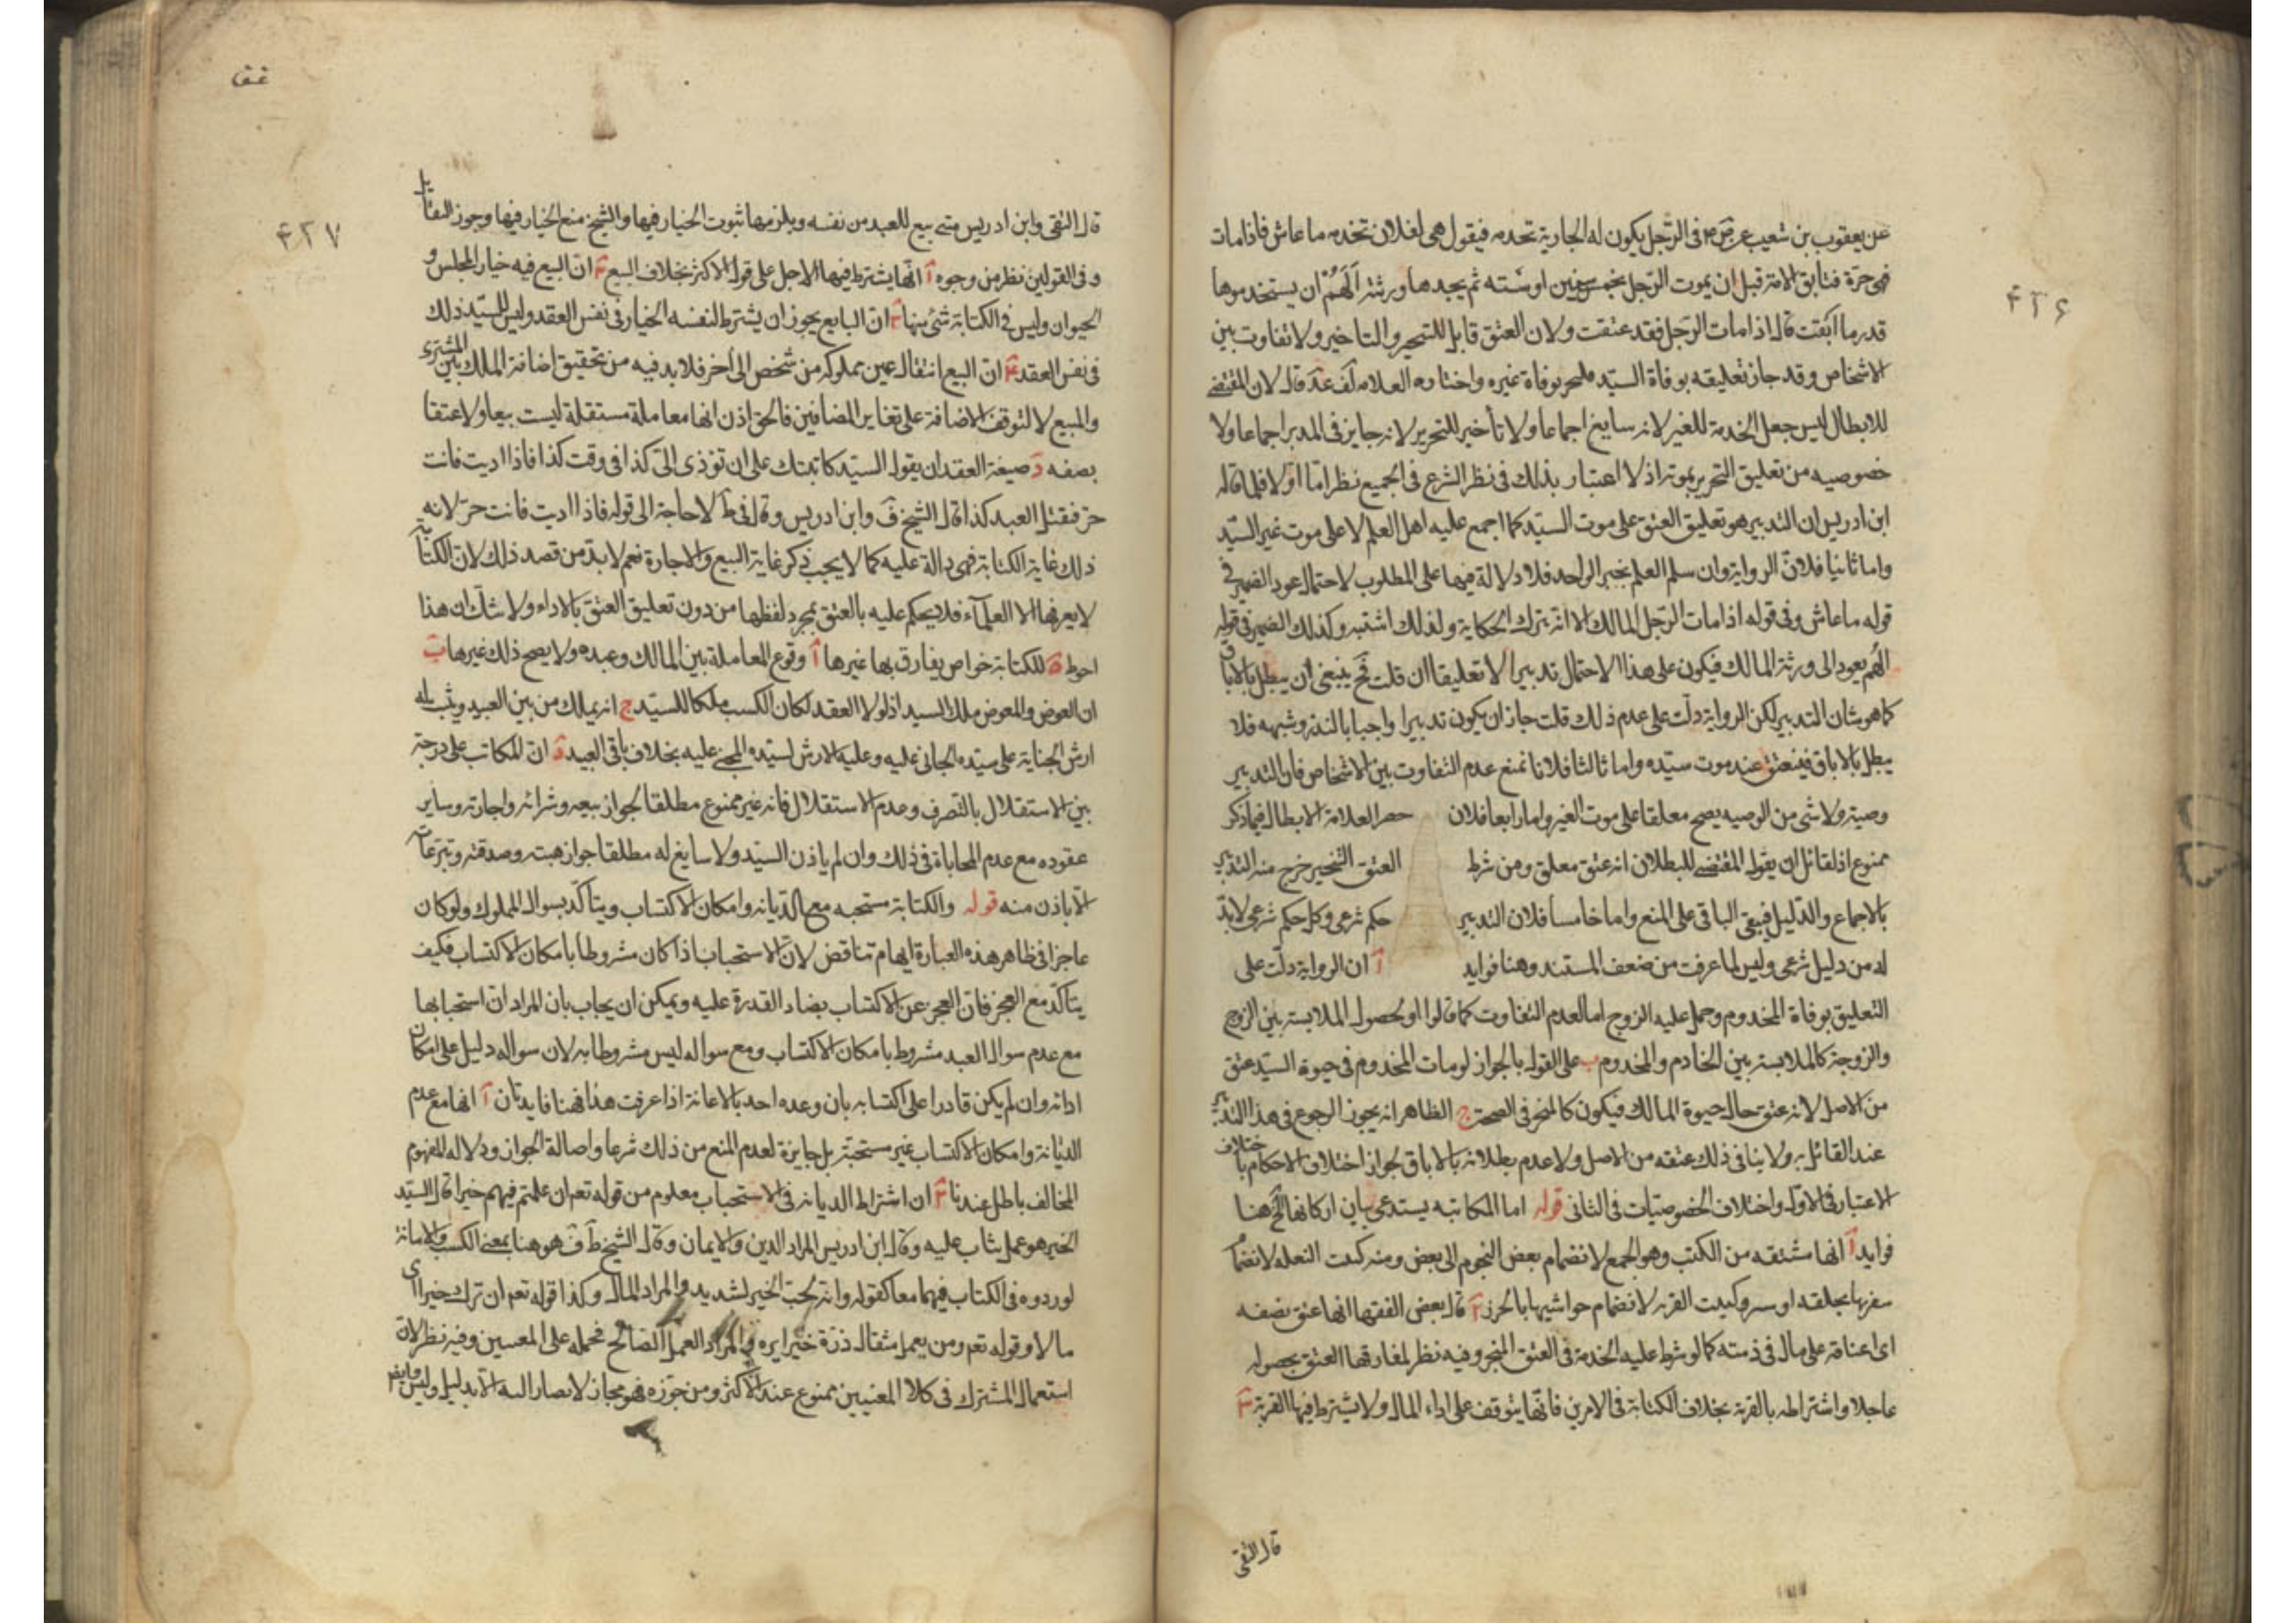 ۴۲۶
عن يعقوب بن شعيب عن ص م فى الرّجل يكون له الجارية تخدمه فيقول هى لفلان تخدمه ما عاش فاذا مات
فهى حرّة فتابق الامة قبل ان يموت الرّجل بخمس سنين او ستّه ثم يجدها ورثته الهم ان يستخدموها
قدر ما ابقت قال اذا مات الرجل فقد عتقت ولان العتق قابل للتنجيز والتاخير ولا تفاوت بين
الاشخاص وقد جاز تعليقه بوفاة السيّد فليجز بوفاة غيره واختاره العلامه لَف عد قال لان المقتضى
للابطال ليس جعل الخدمة للغير لانه سايغ اجماعا ولا تأخير للتحرير لانه جايز فى المدبر اجماعا ولا
خصوصيه من تعليق التحرير بموته اذ لا اعتبار بذلك فى نظر الشرع فى الجميع نظر امّا اوّلا فلما قاله
ابن ادريس ان التدبير هو تعليق العتق على موت السيّد كما اجمع عليه اهل العلم لا على موت غير السيّد
واما ثانيا فلانّ الرواية وان سلم العلم بخبر الواحد فلا دلالة فيها على المطلوب لاحتمال عود الضمير فى
قوله ما عاش وفى قوله اذا مات الرّجل المالك الا انه يترك الحكاية ولذلك اشتبه وكذلك الضمير فى قوله
الهم يعود الى ورثة المالك فيكون على هذا الاحتمال تدبيرا لا تعليقا ان قلت فَح ينبغى ان يبطل بالاباق
كما هو شان التدبير لكن الرواية دلّت على عدم ذلك قلت جاز ان يكون تدبيرا واجبا بالنذر وشبهه فلا
يبطل بالاباق فينعتق عند موت سيّده واما ثالثا فلانا نمنع عدم التفاوت بين الاشخاص فان التدبير
وصية ولا شى من الوصيه يصح معلقا على موت الغير واما رابعا فلان حصر العلامة الابطال فيما ذكر
ممنوع اذ لقائل ان يقول المقتضى للبطلان انه عتق معلق ومن شرط العتق التنجيز خرج منه التدبير
بالاجماع والدّليل فيبقى الباقى على المنع واما خامسا فلان التدبير حكم شرعى وكل حكم شرعى لا بدّ
له من دليل شرعى وليس لما عرفت من ضعف المستند وهنا فوايد آ ان الرواية دلّت على
التعليق بوفاة المخدوم وحمل عليه الزوج اما لعدم التفاوت كما قالوا او لحصول الملابسة بين الزوج
والزوجة كالملابسة بين الخادم والمخدوم ب على القول بالجواز لو مات المخدوم فى حيوة السيّد عتق
من الاصل لانه عتق حال حيوة المالك فيكون كالمنجز فى الصحة ج الظاهر انه يجوز الرجوع فى هذا التدبير
عند القائل به ولا ينافى ذلك عتقه من الاصل ولا عدم بطلانه بالاباق لجواز اختلاف الاحكام باختلاف
الاعتبار فى الاول واختلاف الخصوصيّات فى الثانى قوله اما المكاتبه يستدعى بيان اركانها الخ هنا
فوايد آ انها مشتقه من الكتب وهو الجمع لانضمام بعض النجوم الى بعض ومنه كتبت
لانضمام حواشيها بالخرز قال بعض الفقها انها عتق بصفه
اى اعتاقه على مال فى ذمته كما لو شرط عليه الخدمة فى العتق المنجز وفيه نظر لمفارقها العتق بحصوله
عاجلا واشتراطه بالقربة بخلاف الكتابة فى الامرين فانّها يتوقف على اداء المال ولا يشترط فيها القربة ٣
قال التقى
۴۲۷
قال التقى وابن ادريس متى بيع للعبد من نفسه ويلزمها ثبوت الخيار فيها والشيخ منع الخيار فيها وجوز
وفى القولين نظر من وجوه آ انّها يشترط فيها الاجل على قول الاكثر بخلاف البيع ٢ انّ البيع فيه خيار المجلس و
الحيوان وليس فى الكتابة شئ منها ٣ انّ البايع يجوز ان يشترط لنفسه الخيار فى نفس العقد وليس للسيّد ذلك
فى نفس العقد ۴ انّ البيع انتقال عين مملوكه من شخص الى آخر فلا بد فيه من تحقيق اضافة الملك بين المشترى
والمبيع لا لتوقف الاضافة على تغاير المضافين فالحق اذن انها معاملة مستقلة ليست بيعا ولا عتقا
بصفه دَ صيغة العقد ان يقول السيّد كاتبتك على ان تؤذى الىّ كذا فى وقت كذا فاذا اديت فانت
حرّ فيقبل العبد كذا قال الشيخ فَ وابن ادريس وقال فى ط لا حاجة الى قوله فاذا اديت فانت حرّ لانه
ذلك غاية الكتابة فهى دالة عليه كما لا يجب ذكر غاية البيع والاجارة نعم لا بدّ من قصد ذلك لانّ الكتابة
لا يعرفها الا العلمآء فلا يحكم عليه بالعتق بمجرد لفظها من دون تعليق العتق بالاداء ولا شك ان هذا
احوط ةَ للكتابة خواص يفارق بها غيرها آ وقوع المعاملة بين المالك وعبده ولا يصح ذلك غيرها ب
ان العوض والمعوض ملك السيد اذ لولا العقد لكان الكسب ملكا للسيّد ج انه يملك من بين العبيد ويثبت له
ارش الجناية على سيّده الجانى عليه وعليه الارش لسيّده المجنى عليه بخلاف باقى العبيد دَ انّ المكاتب على درجة
بين الاستقلال بالتصرف وعدم الاستقلال فانه غير ممنوع مطلقا لجواز بيعه وشرائه واجارته وساير
عقوده مع عدم المحاباة فى ذلك وان لم ياذن السيّد ولا سايغ له مطلقا جواز هبته وصدقته وتبرّعاته
الّا باذن منه قوله والكتابة مستحبه مع الدّيانه وامكان الاكتساب ويتاكّد بسوال المملوك ولو كان
عاجزا فى ظاهر هذه العبارة ايهام تناقض لانّ الاستحباب اذا كان مشروطا بامكان الاكتساب فكيف
يتاكّد مع العجز فانّ العجز عن الاكتساب يضاد القدرة عليه ويمكن ان يجاب بان المراد انّ استحبابها
مع عدم سوال العبد مشروط بامكان الاكتساب ومع سواله ليس مشروطا به لان سواله دليل على امكان
ادائه وان لم يكن قادرا على اكتسابه بان وعده احد بالاعانة اذا عرفت هذا فهنا فايدتان آ انها مع عدم
الدّيانة وامكان الاكتساب غير مستحبّة بل جايزة لعدم المنع من ذلك شرعا واصالة الجواز ودلاله المفهوم
المخالف باطل عندنا ٢ ان اشتراط الديانه فى الاستحباب معلوم من قوله تعم ان علمتم فيهم خيرا قال السيّد
الخير هو عمل يثاب عليه وقال ابن ادريس المراد الدين والايمان وقال الشيخ طَ فَ هو هنا بمعنى الكسب والامانة
لوروده فى الكتاب فيهما معا كقوله وانه لحب الخير لشديد والمراد المال وكذا قوله تعم ان ترك خيرا اى
مالا وقوله تعم ومن يعمل مثقال ذرّة خيرا يره والمراد العمل الصالح فحمله على المعنيين وفيه نظر لانّ
استعمال المشترك فى كلا المعنيين ممنوع عند الاكثر ومن جوّزه فهو مجاز لا يصار اليه الّا بدليل وليس